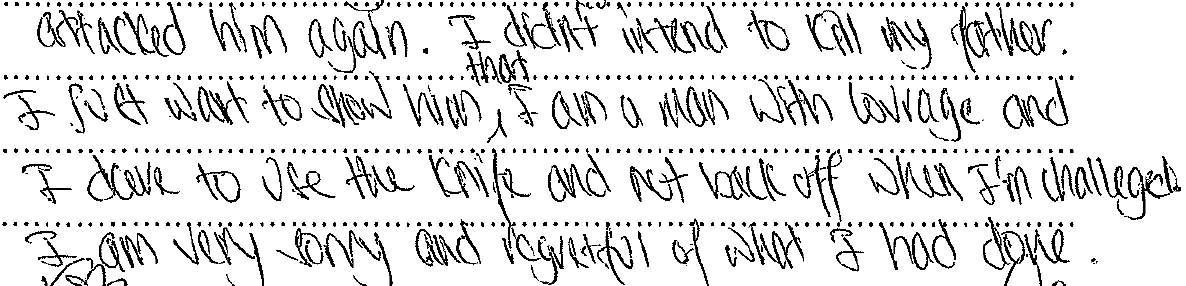 attacked him again. I didn't intend to kill my father.
I just want to show him, that I am a man with courage and
I dare to use the knife and not back off when I'm challeged
I am very sorry and regretful of what I had done.